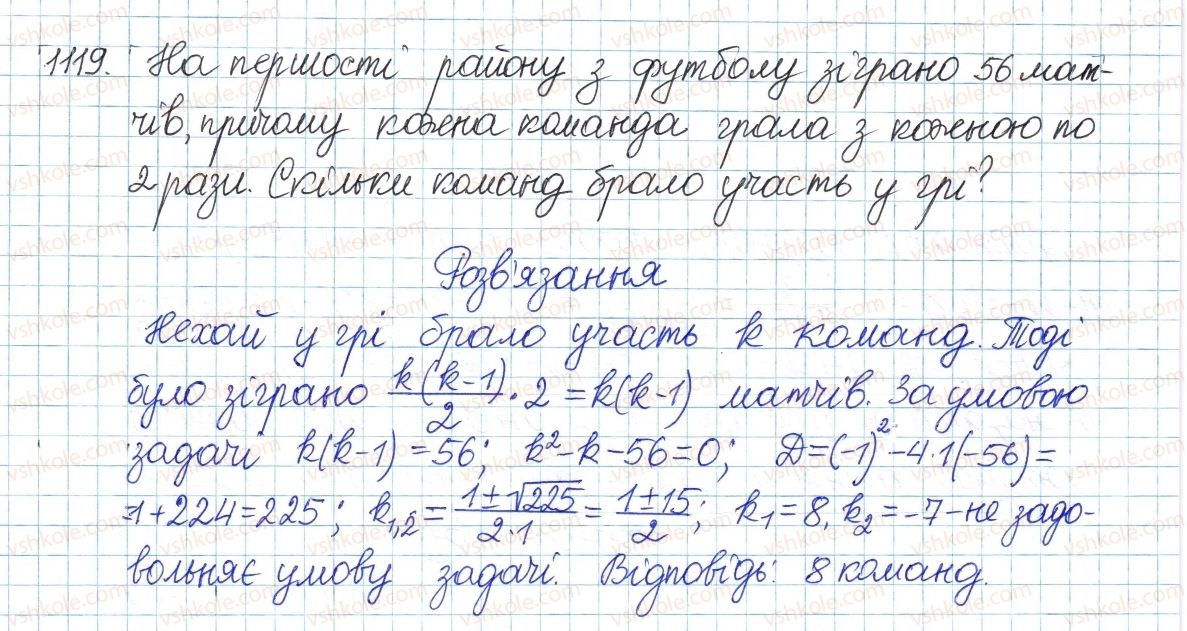 1119. На першості району з футболу зіграно 56 мат-
чів, причому кожна команда грала з кожною по
2 рази. Скільки команд брало участь у грі?
Розв'язання
Нехай у грі брало участь k команд. Тоді
було зіграно k(k-1)/2 · 2 = k(k-1) матчів. За умовою
задачі k(k-1) = 56; k²-k-56=0; Д=(-1)²-4·1(-56)=
=1+224=225; k₁,₂ = (1±√225)/(2·1) = (1±15)/2; k₁=8, k₂=-7-не задо-
вольняє умову задачі. Відповідь: 8 команд.